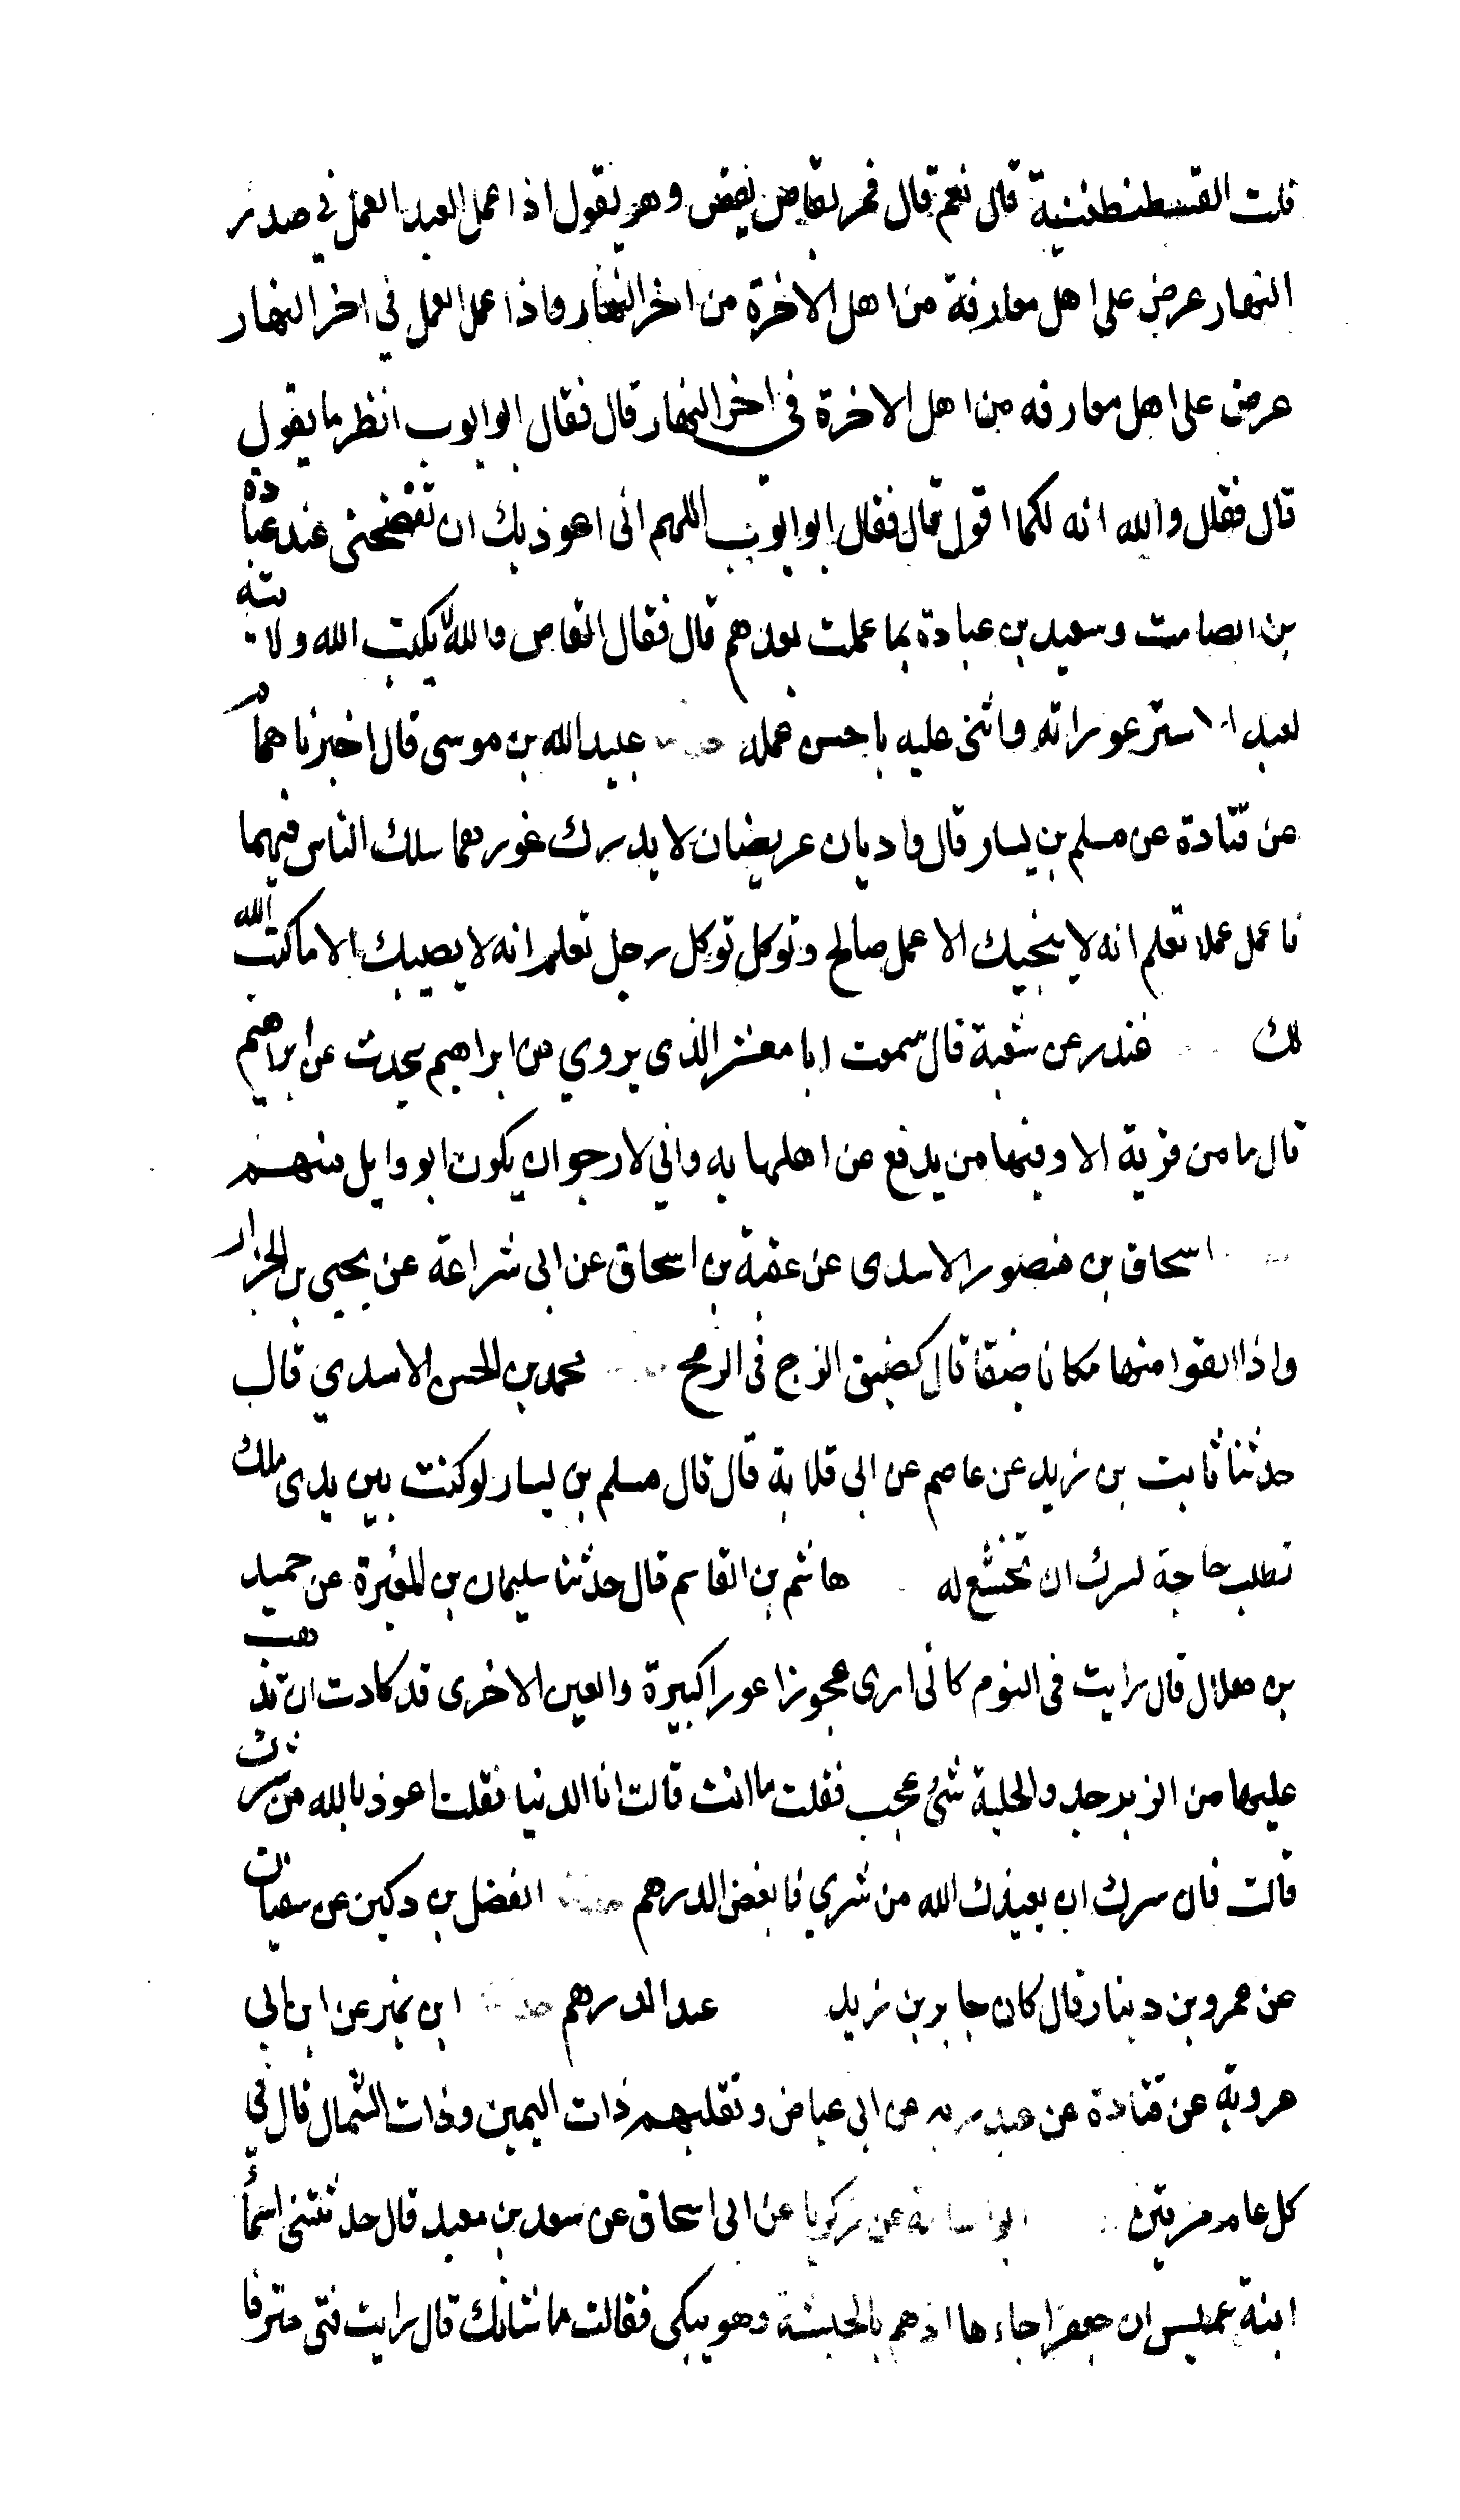 قلت القسطنطنية قال نعم قال فمر بقاص يقص وهو يقول اذا عمل العبد العمل في صدر
النهار عرض على اهل معارفة من اهل الاخرة من اخر النهار واذا عمل العمل في اخر النهار
عرض على اهل معارفه من اهل الاخرة في اخر النهار قال فقال ابو ايوب انظر ما يقول
قال فقال والله انه لكما اقول قال فقال ابو ايوب اللهم انى اعوذ بك ان تفضحنى عند عبادة
بن الصامت وسعيد بن عبادة بما عملت بعدهم قال فقال القاص والله لا يكتب الله ولايته
لعبد الا ستر عوراته واثنى عليه باحسن عمله عبيد الله بن موسى قال اخبرنا همام
عن قتادة عن مسلم بن يسار قال واديان عريضان لا يدرك غورهما سلك الناس فيهما
فاعمل عملا تعلم انه لا ينجيك الا عمل صالح وتوكل توكل رجل تعلم انه لا يصيبك الا ما كتب الله
لك غندر عن شعبة قال سمعت ابا معشر الذى يروي عن ابراهيم يحدث عن ابراهيم
قال ما من قرية الا وفيها من يدفع عن اهلها به واني لارجو ان يكون ابو وايل منهم
اسحاق بن منصور الاسدى عن عقبة بن اسحاق عن ابى شراعة عن يحيى بن الجزار
واذا القوا منها مكانا ضيقا قال كضيق الزج فى الرمح محمد بن الحسن الاسدي قال
حدثنا ثابت بن زيد عن عاصم عن ابى قلابة قال قال مسلم بن يسار لو كنت بين يدى ملك
تطلب حاجة لسرك ان تخشع له هاشم بن القاسم قال حدثنا سليمان بن المغيرة عن حميد
بن هلال قال رايت فى النوم كانى ارى عجوزا عورا كبيرة والعين الاخرى قد كادت ان تذهب
عليها من الزبرجد والحلية شئ عجب فقلت ما انت قالت انا الدنيا فقلت اعوذ بالله من شرك
قالت فان سرك ان يعيذك الله من شري فابغض الدرهم حدثنا الفضل بن دكين عن سفيان
عن عمرو بن دينار قال كان جابر بن زيد عبد الدرهم حدثنا ابن نمير عن ابن ابي
عروبة عن قتادة عن عبد ربه عن ابي عياض ونقلبهم ذات اليمين وذات الشمال قال في
كل عام مرتين ابو اسامة عن زكريا عن ابى اسحاق عن سعد بن معبد قال حدثتنى اسما
ابنة عميس ان جعفرا جاءها اذ هم بالحبشة وهو يبكى فقالت ما شانك قال رايت فتى مترفا